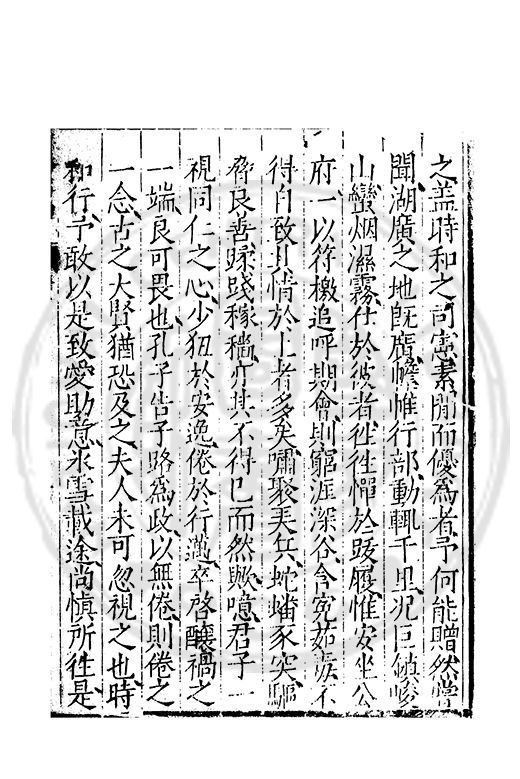 之盖時和之司憲素聞而優為者予何能贈然嘗
聞湖廣之地旣廣幨帷行部動輒千里况巨鎮峻
山蠻烟濕霧仕於彼者徃徃憚於跋履惟安坐公
府一以符檄追呼期會則窮涯深谷含寃茹痰不
得自致其情於上者多矣嘯聚弄兵蛇蟠豕突驅
脅良善蹂踐稼穡亦其不得已而然歟噫君子一
視同仁之心少狃於安逸倦於行邁卒啓釀禍之
一端良可畏也孔子告子路為政以無倦則倦之
一念古之大賢猶恐及之夫人未可忽視之也時
和行予敢以是致愛助意氷雪載途尚慎所徃是